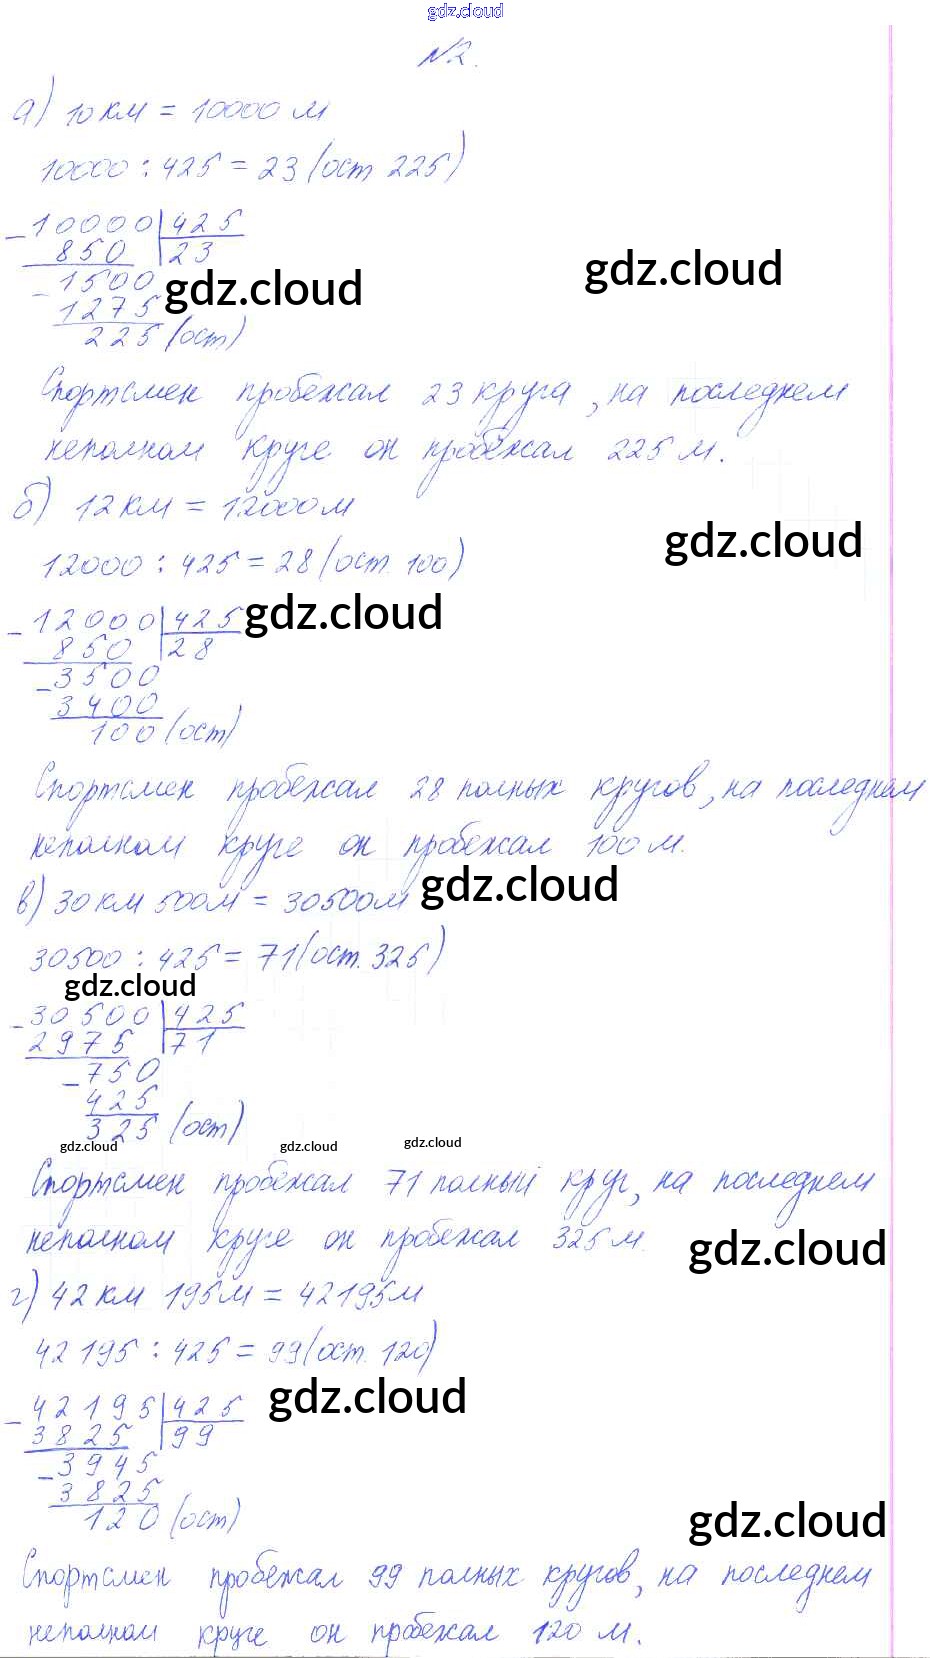 gdz.cloud
№2.
а) 10 км = 10000 м
10000 : 425 = 23 (ост 225)
- 10000 | 425
850 | 23
gdz.cloud
- 1500
gdz.cloud
1275
225 (ост)
Спортсмен пробежал 23 круга, на последнем
неполном круге он пробежал 225 м.
б) 12 км = 12000 м
gdz.cloud
12000 : 425 = 28 (ост. 100)
- 12000 | 425 gdz.cloud
850 | 28
- 3500
3400
100 (ост)
Спортсмен пробежал 28 полных кругов, на последнем
неполном круге он пробежал 100 м.
в) 30 км 500 м = 30500 м gdz.cloud
30500 : 425 = 71 (ост. 325)
gdz.cloud
- 30500 | 425
2975 | 71
- 750
425
325 (ост)
gdz.cloud gdz.cloud gdz.cloud
Спортсмен пробежал 71 полный круг, на последнем
неполном круге он пробежал 325 м.
gdz.cloud
г) 42 км 195 м = 42195 м
42195 : 425 = 99 (ост. 120)
- 42195 | 425 gdz.cloud
3825 | 99
- 3945
3825
120 (ост)
gdz.cloud
Спортсмен пробежал 99 полных кругов, на последнем
неполном круге он пробежал 120 м.